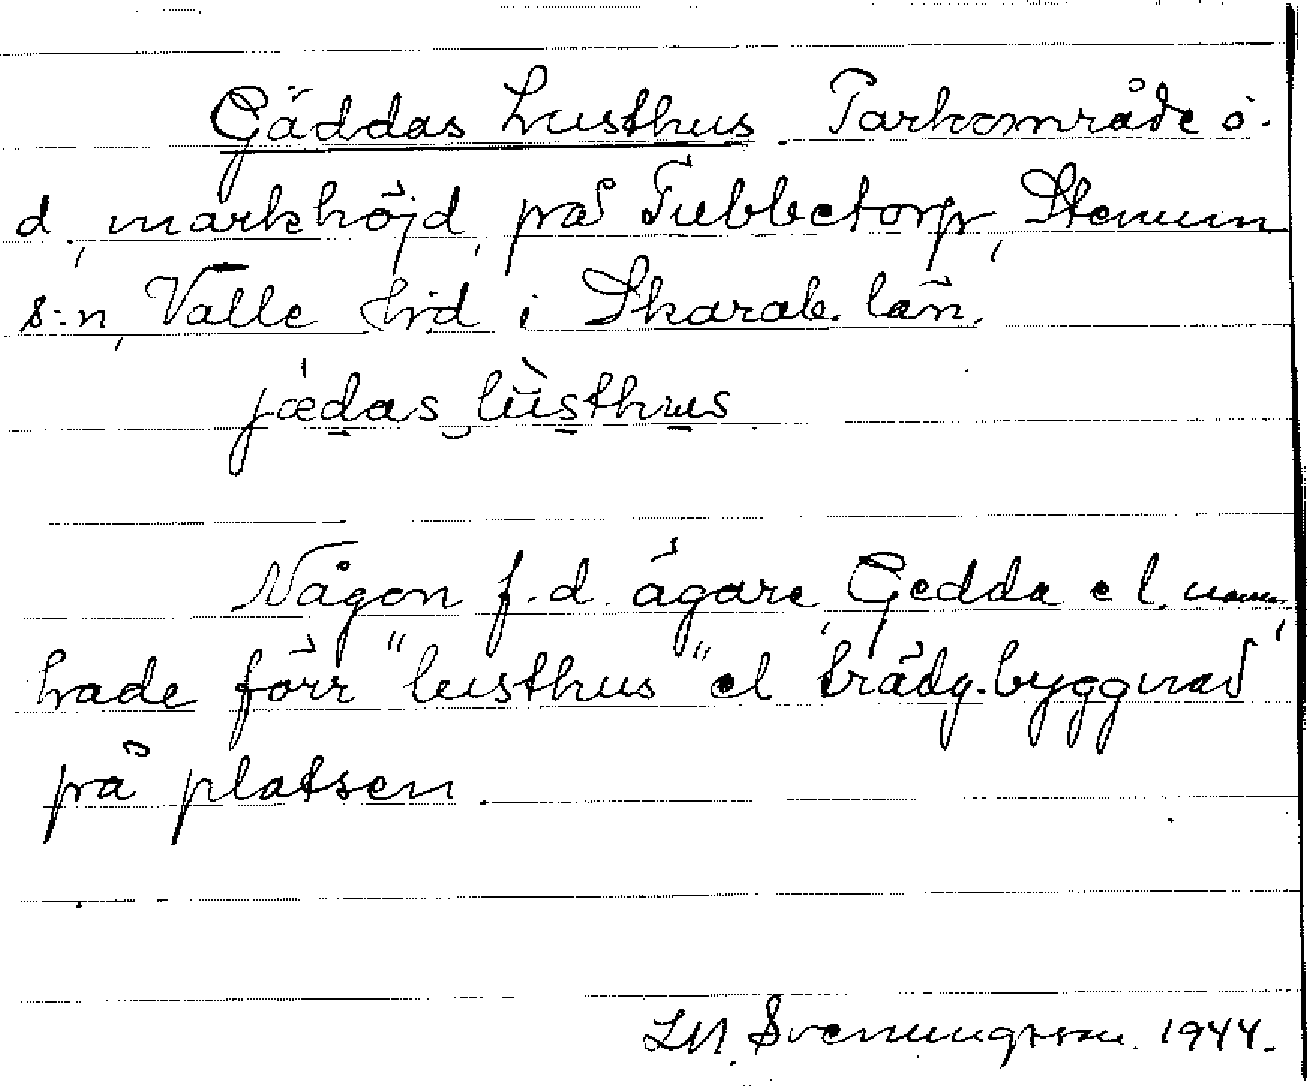 Gäddas Lusthus Parkområde o.
d, markhöjd, på Tubbetorp, Stenum
s:n, Valle hd i Skarab. län.
jædas lùsthus
Någon f.d. ägare, Gedda el.
hade förr "lusthus" el trädg.byggnad
på platsen.
Svenungsson 1944.